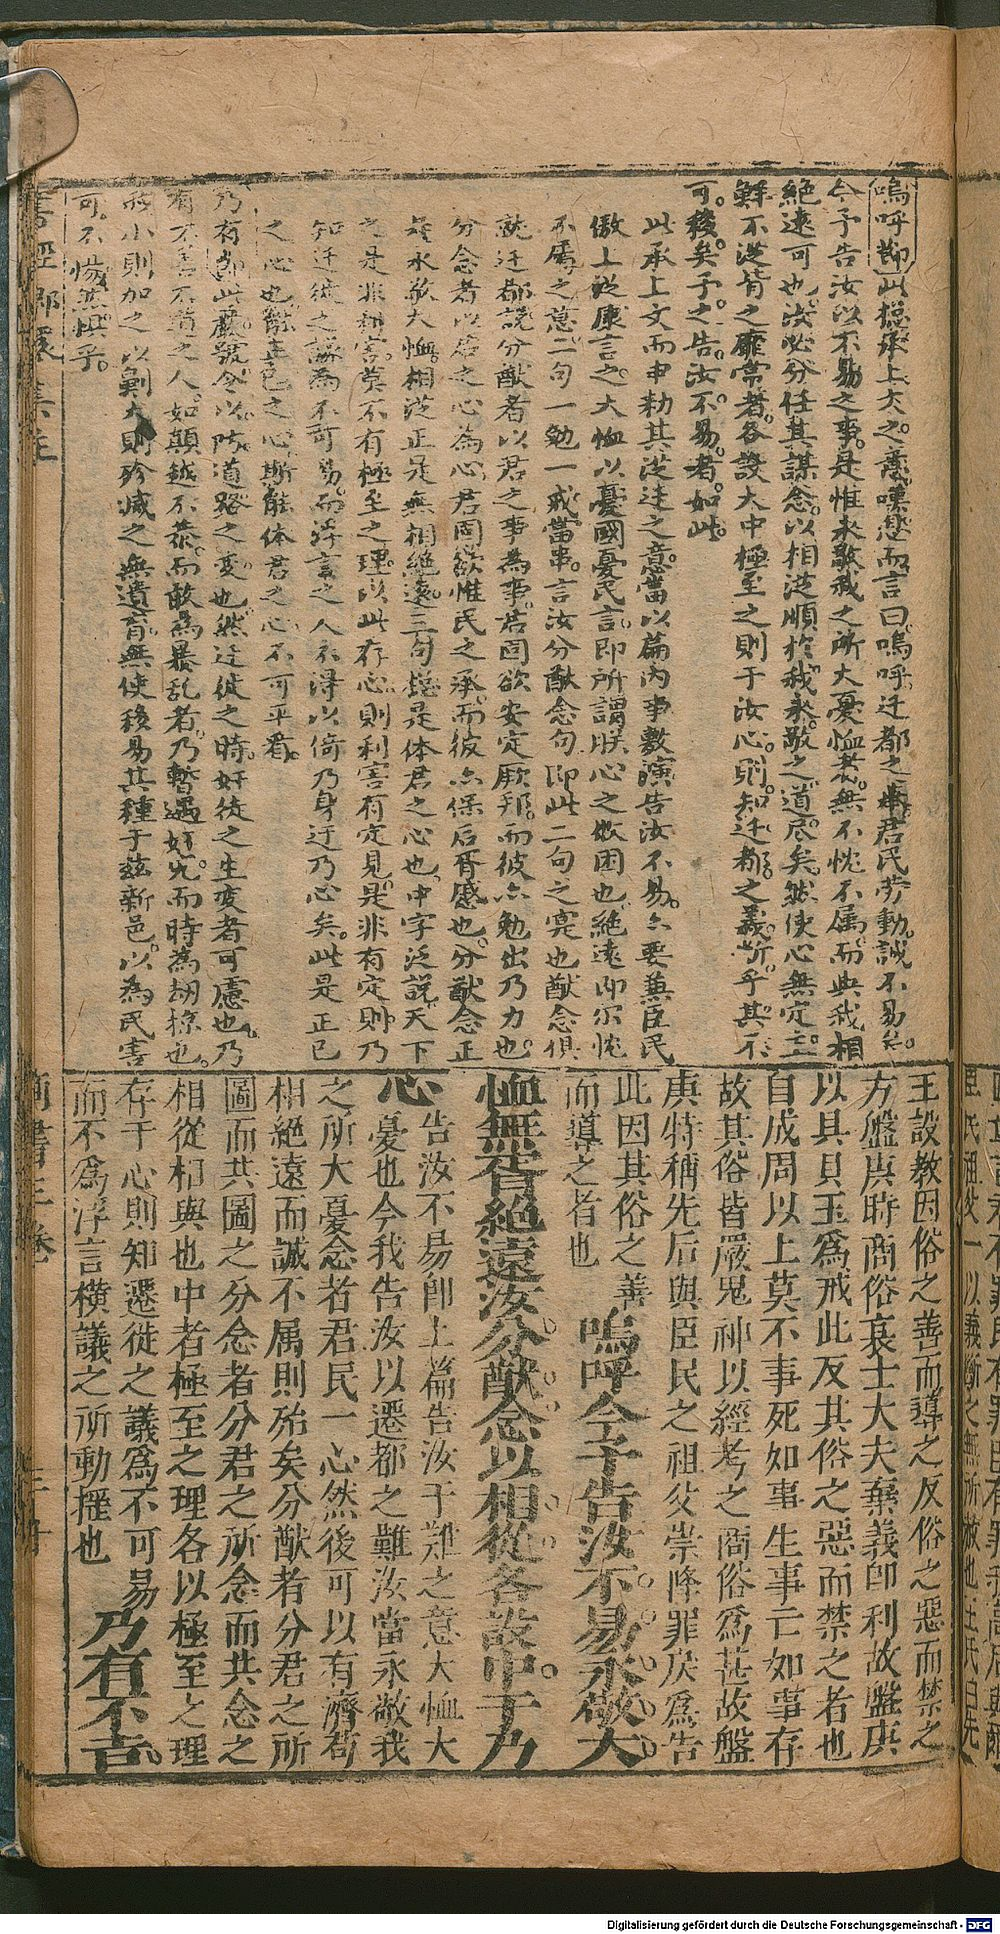 嗚呼節此總承上文之意嘆息而言曰嗚呼迁都之舉君民劳動誠不易矣
今予告汝以不易之事是惟永敬我之所大憂恤者無不忱不属而與我相
絶遠可也汝必分任其謀念以相從順於我永敬之道尽矣然使心無定主
鮮不從
之靡常者各設大中極至之則于汝心則知迁都之義断乎其不
可移矣予之告汝不易者如此
此承上文而申勑其從迁之意當以篇内事敷演告汝不易亦要兼臣民
傲上從康言之大恤以憂國憂民言即所謂朕心之攸困也絶遠即尔忱
不属之意二句一勉一戒當串言汝分猷念句即此二句之实也猷念俱
就迁都說分猷者以君之事為事君固欲安定厥邦而彼亦勉出乃力也
分念者以君之心為心君固欲惟民之承而彼亦保后胥慼也分猷念正
是永敬大恤相從正是無相絶遠三句總是体君之心也中字泛說天下
之是非利害莫不有極至之理以此存心則利害有定見是非有定則乃
知迁徙之議為不可易而浮言之人不得以倚乃身迂乃心矣此是正已
之心也能正已之心斯能体君之心不可平看
乃有節此嚴號令以防道路之变也然迁徙之時奸徒之生变者可慮也乃
有不善不道之人如顛越不恭而敢為暴乱者乃暫遇奸宄而時為劫掠也
我小則加之以劓大則殄滅之無遺育無使移易其種于茲新邑以為民害
可不惕然惧乎
王設教因俗之善而導之反俗之惡而禁之
方盤庚時商俗衰士大夫棄義即利故盤庚
以具貝玉爲戒此反其俗之惡而禁之者也
自成周以上莫不事死如事生事亡如事存
故其俗皆嚴鬼神以經考之商俗爲甚故盤
庚特稱先后與臣民之祖父崇降罪戾爲告
此因其俗之善
而導之者也
嗚呼今予告汝不易永敬大
恤無胥絶遠汝分猷念以相從各設中于乃
心
告汝不易即上篇告汝于難之意大恤大
憂也今我告汝以遷都之難汝當永敬我
之所大憂念者君民一心然後可以有濟苟
相絶遠而誠不属則殆矣分猷者分君之所
圖而共圖之分念者分君之所念而共念之
相從相與也中者極至之理各以極至之理
存于心則知遷徙之議爲不可易
而不爲浮言橫議之所動摇也
乃有不吉
商書三卷
Digitalisierung gefördert durch die Deutsche Forschungsgemeinschaft - DFG